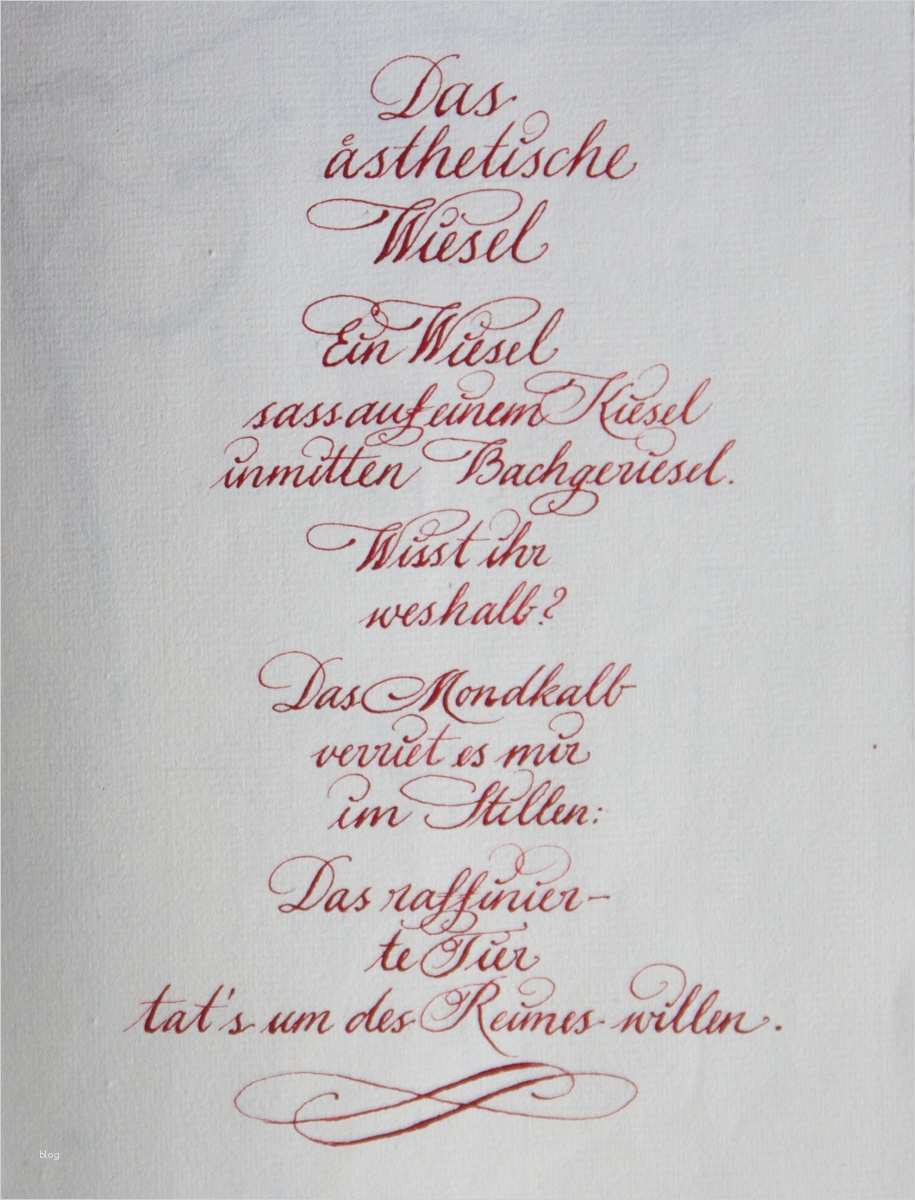 Das
ästhetische
Wiesel
Ein Wiesel
sass auf einem Kiesel
inmitten Bachgeriesel.
Wisst ihr
weshalb?
Das Mondkalb
verriet es mir
im Stillen:
Das raffinier-
te Tier
tat's um des Reimes willen.
blog